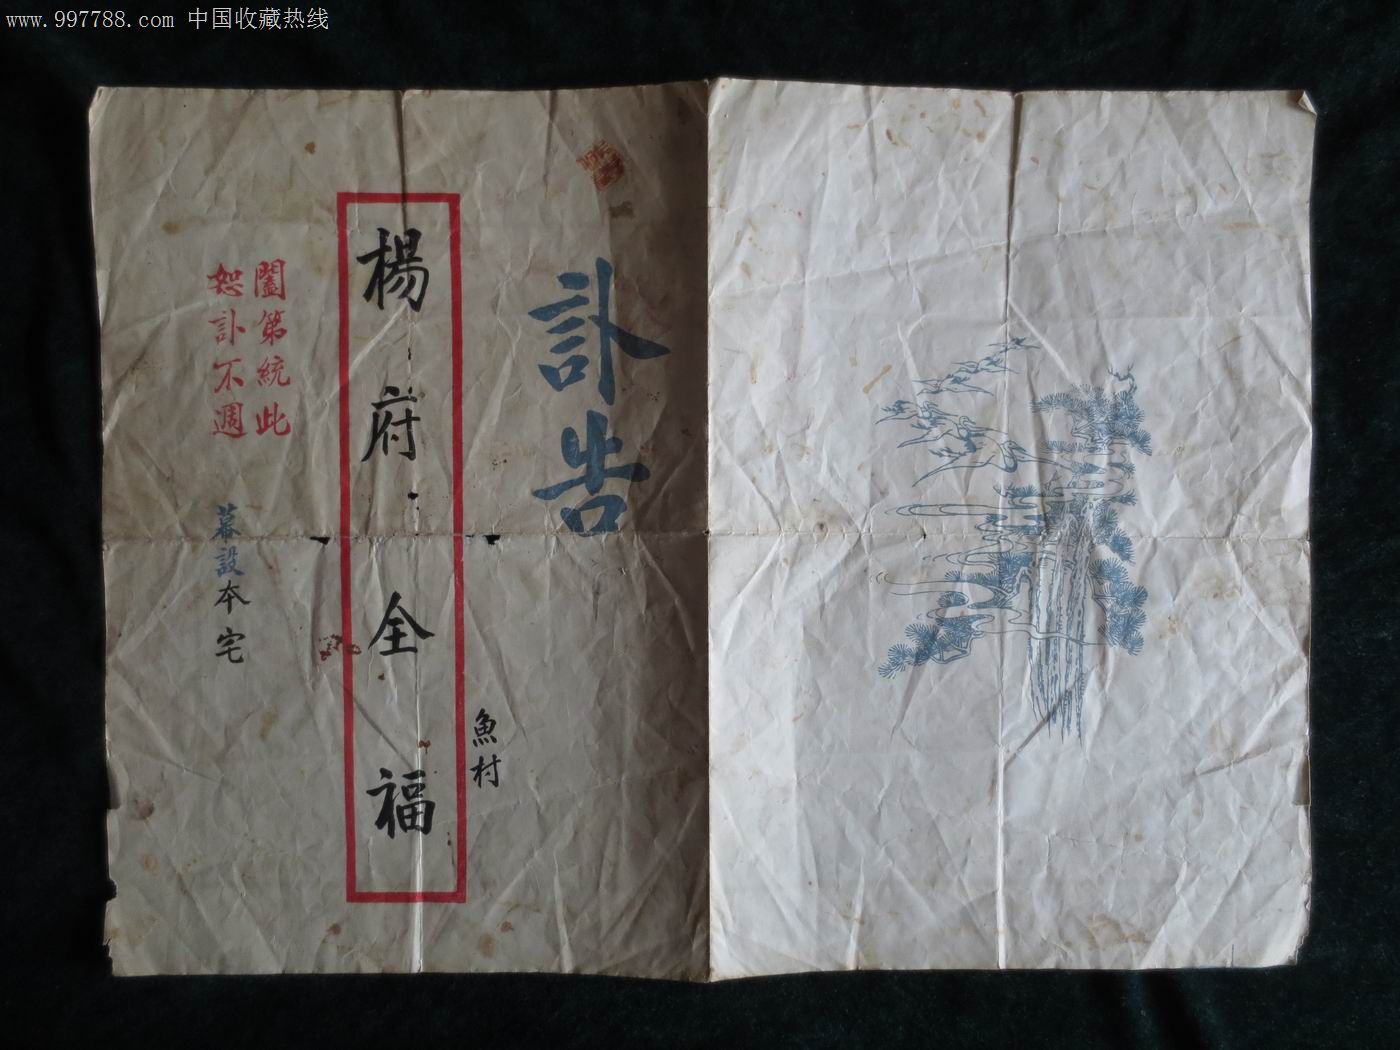 www.997788.com 中国收藏热线
訃告
魚村
楊府全福
闔第統此
恕訃不週
幕設本宅